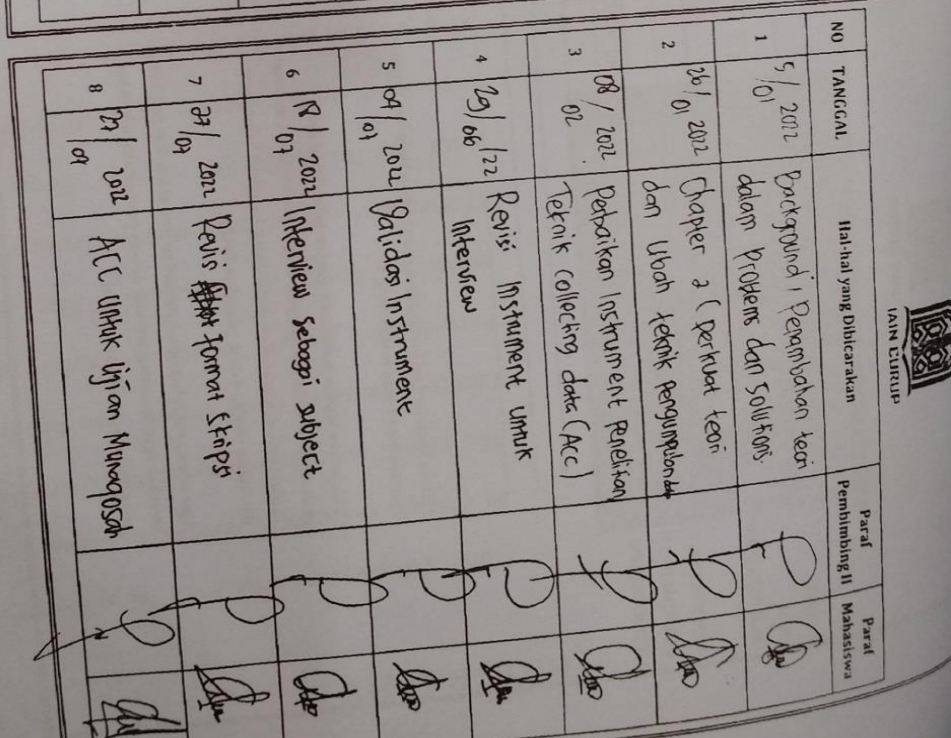 IAIN CURUP
NO TANGGAL Hal-hal yang Dibicarakan Paraf Pembimbing II Paraf Mahasiswa
1 5/01 2022 Background, Penambahan teori
dalam problems dan solutions.
2 26/01 2022 Chapter 2 (perkuat teori
dan Ubah teknik pengumpulan
3 08/02 2022 Perbaikan Instrument penelitian
Teknik collecting data (Acc)
4 29/06/22 Revisi Instrument untuk
Interview
5 2022 Validasi Instrument
6 18/07 2022 Interview sebagai subject
7 27/07 2022 Revisi format skripsi
8 27/ 2022 ACC untuk Ujian Munaqosah